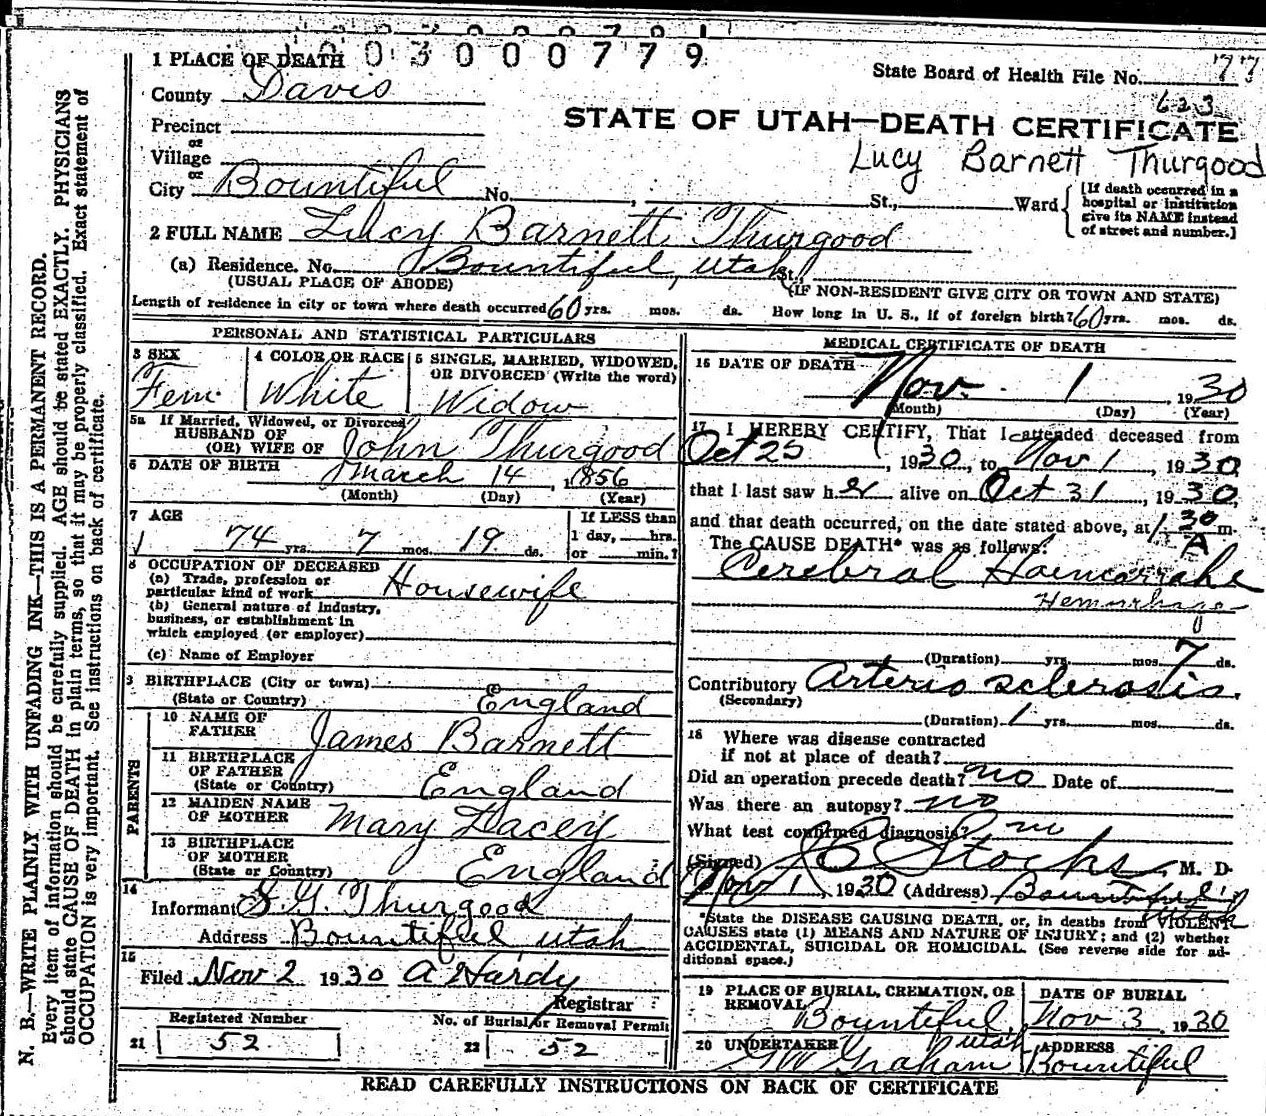 0 3 0 0 0 7 7 9
1 PLACE OF DEATH
State Board of Health File No. 77
623
County Davis
STATE OF UTAH—DEATH CERTIFICATE
Precinct
or
Village
Lucy Barnett Thurgood
or
City Bountiful No. , St., Ward
[If death occurred in a
hospital or institution
give its NAME instead
of street and number.]
2 FULL NAME Lucy Barnett Thurgood
(a) Residence. No. Bountiful, Utah St.,
(USUAL PLACE OF ABODE)
(IF NON-RESIDENT GIVE CITY OR TOWN AND STATE)
Length of residence in city or town where death occurred 60 yrs. mos. ds. How long in U. S., if of foreign birth? 60 yrs. mos. ds.
PERSONAL AND STATISTICAL PARTICULARS
3 SEX
Fem.
4 COLOR OR RACE
White
5 SINGLE, MARRIED, WIDOWED,
OR DIVORCED (Write the word)
Widow
5a If Married, Widowed, or Divorced
HUSBAND OF
(OR) WIFE OF John Thurgood
6 DATE OF BIRTH March 14, 1856
(Month) (Day) (Year)
7 AGE
74 yrs. 7 mos. 19 ds.
If LESS than
1 day, hrs.
or min.?
8 OCCUPATION OF DECEASED
(a) Trade, profession or
particular kind of work Housewife
(b) General nature of Industry,
business, or establishment in
which employed (or employer)
(c) Name of Employer
9 BIRTHPLACE (City or town)
(State or Country) England
PARENTS
10 NAME OF
FATHER James Barnett
11 BIRTHPLACE
OF FATHER
(State or Country) England
12 MAIDEN NAME
OF MOTHER Mary Lacey
13 BIRTHPLACE
OF MOTHER
(State or Country) England
14
Informant S. G. Thurgood
Address Bountiful Utah
15
Filed Nov 2 1930 A Hardy
Registrar
Registered Number
No. of Burial or Removal Permit
21 52
22 52
MEDICAL CERTIFICATE OF DEATH
16 DATE OF DEATH
Nov. 1, 1930
(Month) (Day) (Year)
17 I HEREBY CERTIFY, That I attended deceased from
Oct 25, 1930, to Nov 1, 1930,
that I last saw her alive on Oct 31, 1930,
and that death occurred, on the date stated above, at 1 30 m.
A
The CAUSE DEATH* was as follows:
Cerebral Haemorrahe
Hemorrhage
(Duration) yrs. mos. 7 ds.
Contributory Arterio sclerosis.
(Secondary)
(Duration) 1 yrs. mos. ds.
18 Where was disease contracted
if not at place of death?
Did an operation precede death? no Date of
Was there an autopsy? no
What test confirmed diagnosis? no
(Signed) Stocks, M. D.
Nov 1, 1930 (Address) Bountiful
Utah
*State the DISEASE CAUSING DEATH, or, in deaths from VIOLENT
CAUSES state (1) MEANS AND NATURE OF INJURY; and (2) whether
ACCIDENTAL, SUICIDAL OR HOMICIDAL. (See reverse side for ad-
ditional space.)
19 PLACE OF BURIAL, CREMATION, OR
REMOVAL
Bountiful,
Utah
DATE OF BURIAL
Nov 3, 1930
20 UNDERTAKER
GW Graham
ADDRESS
Bountiful
READ CAREFULLY INSTRUCTIONS ON BACK OF CERTIFICATE
N. B.—WRITE PLAINLY WITH UNFADING INK—THIS IS A PERMANENT RECORD.
Every item of information should be carefully supplied. AGE should be stated EXACTLY. PHYSICIANS
should state CAUSE OF DEATH in plain terms, so that it may be properly classified. Exact statement of
OCCUPATION is very important. See instructions on back of certificate.